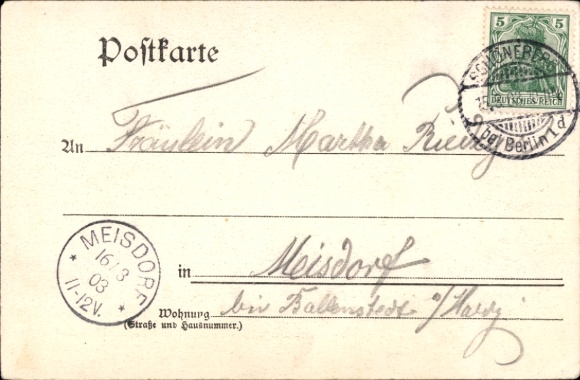 Postkarte
5 5
DEUTSCHES REICH
SCHÖNEBERG
bei Berlin 1.d
An Fräulein Martha
MEISDORF
16/3
03
11-12V.
in Meisdorf
bei Ballenstedt a/Harz
Wohnung
(Straße und Hausnummer.)